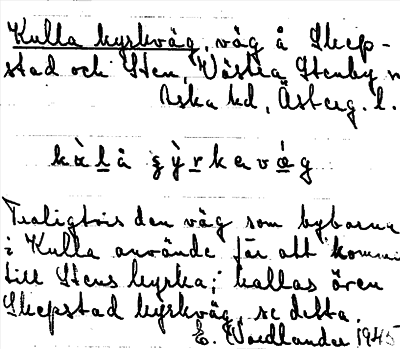 Kulla kyrkväg, väg å Skep-
stad och Sten, Västra Stenby
Aska hd, Österg. l.
Troligtvis den väg som byborna
i Kulla använde för att komma
till Stens kyrka; kallas även
Skepstad kyrkväg, se detta.
E. Nordlander 1945